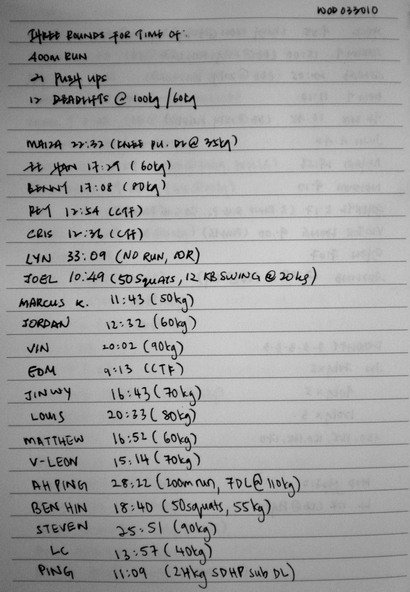 WOD 033010
THREE ROUNDS FOR TIME OF:
400M RUN
21 PUSH UPS
12 DEADLIFTS @ 100kg / 60kg
MAIZA 22:32 (KNEE PU. DL @ 35kg)
HAN 17:29 (60kg)
BENNY 17:08 (80kg)
REY 12:54 (CTF)
CRIS 12:36 (CFF)
LYN 33:09 (NO RUN, 10R)
JOEL 10:49 (50 Squats, 12 KB SWING @ 20kg)
MARCUS K. 11:43 (50kg)
JORDAN 12:32 (60kg)
VIN 20:02 (90kg)
EDM 9:13 (CCTF)
JINWY 16:43 (70kg)
LOUIS 20:33 (80kg)
MATTHEW 16:52 (60kg)
V-LEON 15:14 (70kg)
AH PING 28:22 (200m run, 7DL @ 110kg)
BEN HIN 18:40 (50squats, 55kg)
STEVEN 25:51 (90kg)
LC 13:57 (40kg)
PING 11:09 (24kg SDHP sub DL)